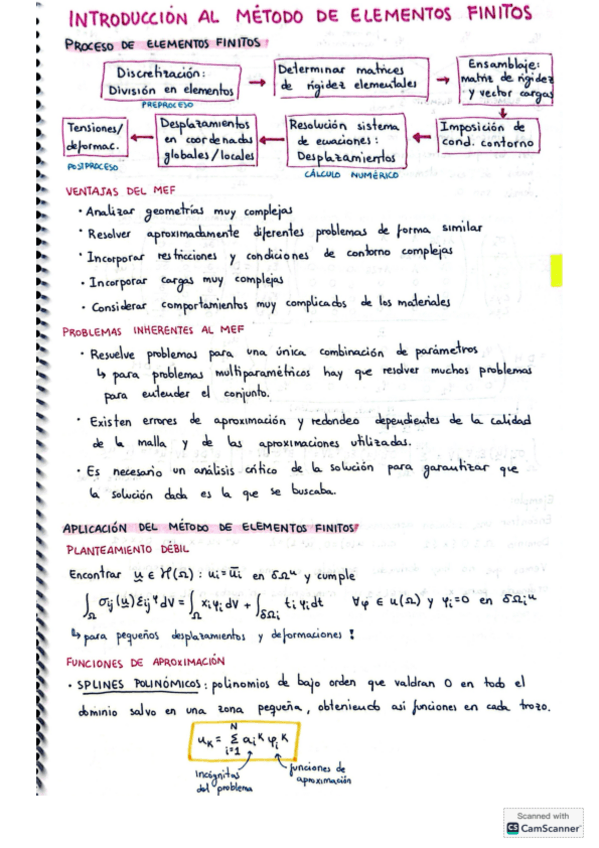 INTRODUCCIÓN AL MÉTODO DE ELEMENTOS FINITOS
PROCESO DE ELEMENTOS FINITOS
Discretización:
División en elementos
PREPROCESO
Determinar matrices
de rigidez elementales
Ensamblaje:
matriz de rigidez
y vector cargas
Imposición de
cond. contorno
Resolución sistema
de ecuaciones:
Desplazamientos
CÁLCULO NUMÉRICO
Desplazamientos
en coordenadas
globales/locales
Tensiones/
deformac.
POSTPROCESO
VENTAJAS DEL MEF
· Analizar geometrías muy complejas
· Resolver aproximadamente diferentes problemas de forma similar
· Incorporar restricciones y condiciones de contorno complejas
· Incorporar cargas muy complejas
· Considerar comportamientos muy complicados de los materiales
PROBLEMAS INHERENTES AL MEF
· Resuelve problemas para una única combinación de parámetros
↳ para problemas multiparamétricos hay que resolver muchos problemas
para entender el conjunto.
· Existen errores de aproximación y redondeo dependientes de la calidad
de la malla y de las aproximaciones utilizadas.
· Es necesario un análisis crítico de la solución para garantizar que
la solución dada es la que se buscaba.
APLICACIÓN DEL MÉTODO DE ELEMENTOS FINITOS
PLANTEAMIENTO DÉBIL
Encontrar u ∈ H(Ω) : ui = ūi en δΩᵘ y cumple
∫Ω σij(u)εijᵠ dV = ∫Ω xiφi dV + ∫δΩi tiφi dt ∀φ ∈ u(Ω) y φi=0 en δΩiᵘ
↳ para pequeños desplazamientos y deformaciones!
FUNCIONES DE APROXIMACIÓN
· SPLINES POLINÓMICOS: polinomios de bajo orden que valdran 0 en todo el
dominio salvo en una zona pequeña, obteniendo asi funciones en cada trozo.
uK = Σ(i=1, N) aiᴷ φiᴷ
incógnitas
del problema
funciones de
aproximación
Scanned with
CS CamScanner